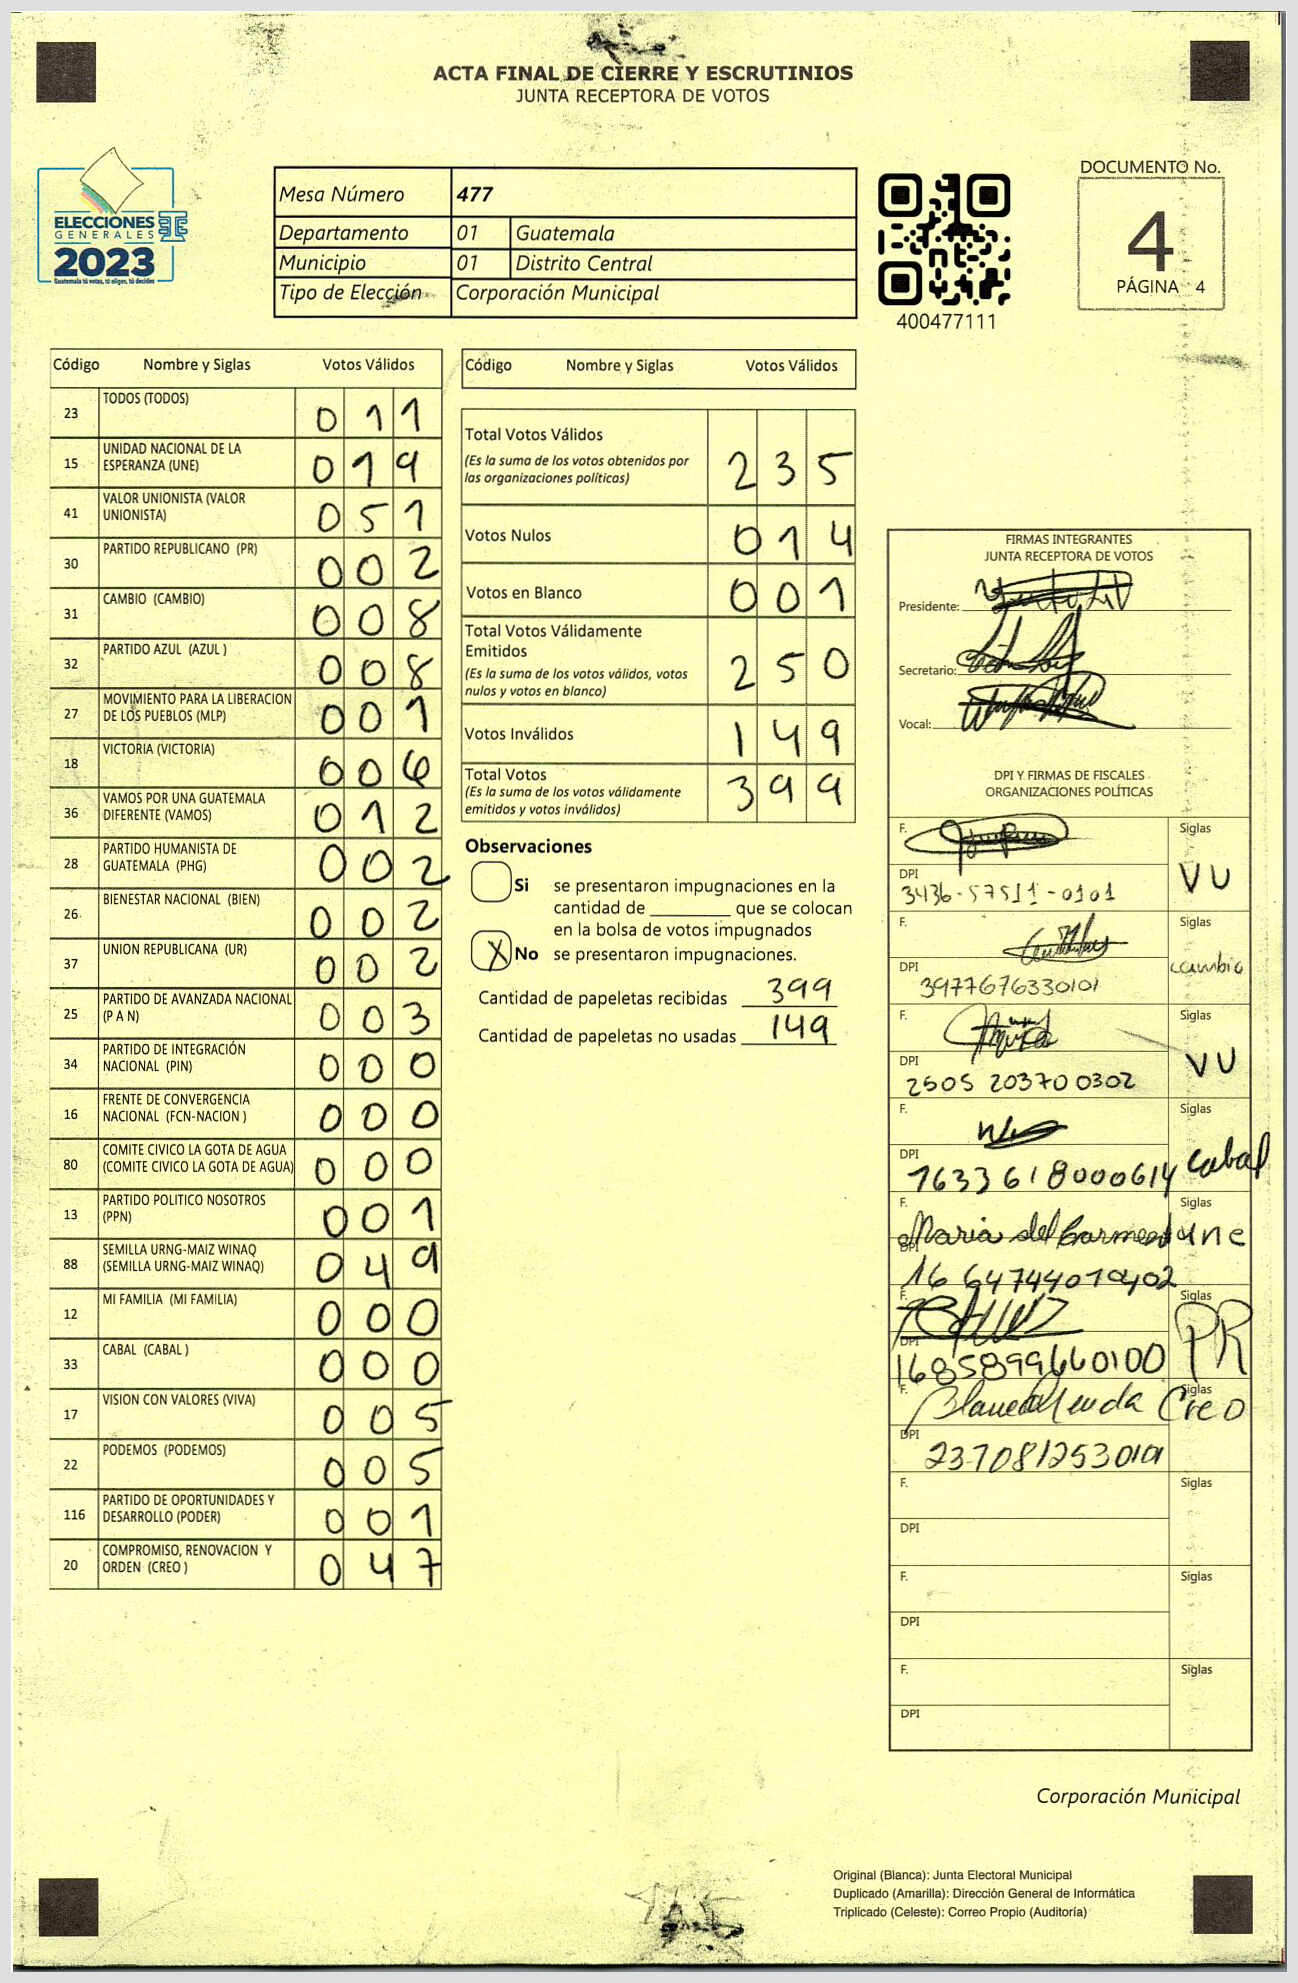 ACTA FINAL DE CIERRE Y ESCRUTINIOS
JUNTA RECEPTORA DE VOTOS
ELECCIONES
GENERALES
2023
Guatemala tú votas, tú eliges, tú decides
Mesa Número 477
Departamento 01 Guatemala
Municipio 01 Distrito Central
Tipo de Elección Corporación Municipal
400477111
DOCUMENTO No.
4
PÁGINA 4
Código Nombre y Siglas Votos Válidos
23 TODOS (TODOS) 0 1 1
15 UNIDAD NACIONAL DE LA ESPERANZA (UNE) 0 1 9
41 VALOR UNIONISTA (VALOR UNIONISTA) 0 5 1
30 PARTIDO REPUBLICANO (PR) 0 0 2
31 CAMBIO (CAMBIO) 0 0 8
32 PARTIDO AZUL (AZUL ) 0 0 8
27 MOVIMIENTO PARA LA LIBERACION DE LOS PUEBLOS (MLP) 0 0 1
18 VICTORIA (VICTORIA) 0 0 6
36 VAMOS POR UNA GUATEMALA DIFERENTE (VAMOS) 0 1 2
28 PARTIDO HUMANISTA DE GUATEMALA (PHG) 0 0 2
26 BIENESTAR NACIONAL (BIEN) 0 0 2
37 UNION REPUBLICANA (UR) 0 0 2
25 PARTIDO DE AVANZADA NACIONAL (P A N) 0 0 3
34 PARTIDO DE INTEGRACIÓN NACIONAL (PIN) 0 0 0
16 FRENTE DE CONVERGENCIA NACIONAL (FCN-NACION ) 0 0 0
80 COMITE CIVICO LA GOTA DE AGUA (COMITE CIVICO LA GOTA DE AGUA) 0 0 0
13 PARTIDO POLITICO NOSOTROS (PPN) 0 0 1
88 SEMILLA URNG-MAIZ WINAQ (SEMILLA URNG-MAIZ WINAQ) 0 4 9
12 MI FAMILIA (MI FAMILIA) 0 0 0
33 CABAL (CABAL ) 0 0 0
17 VISION CON VALORES (VIVA) 0 0 5
22 PODEMOS (PODEMOS) 0 0 5
116 PARTIDO DE OPORTUNIDADES Y DESARROLLO (PODER) 0 0 1
20 COMPROMISO, RENOVACION Y ORDEN (CREO ) 0 4 7
Código Nombre y Siglas Votos Válidos
Total Votos Válidos 2 3 5
(Es la suma de los votos obtenidos por
las organizaciones políticas)
Votos Nulos 0 1 4
Votos en Blanco 0 0 1
Total Votos Válidamente
Emitidos 2 5 0
(Es la suma de los votos válidos, votos
nulos y votos en blanco)
Votos Inválidos 1 4 9
Total Votos 3 9 9
(Es la suma de los votos válidamente
emitidos y votos inválidos)
Observaciones
Si se presentaron impugnaciones en la
cantidad de ________ que se colocan
en la bolsa de votos impugnados
X No se presentaron impugnaciones.
Cantidad de papeletas recibidas 399
Cantidad de papeletas no usadas 149
FIRMAS INTEGRANTES
JUNTA RECEPTORA DE VOTOS
Presidente:
Secretario:
Vocal:
DPI Y FIRMAS DE FISCALES
ORGANIZACIONES POLÍTICAS
F. Siglas
VU
DPI
3436-57511-0101
F. Siglas
cambio
DPI
3977676330101
F. Siglas
VU
DPI
2505 20370 0302
F. Siglas
cabal
DPI
1633618000614
F. Siglas
Maria del Carmen une
DPI
16 64744010402
F. Siglas
PR
DPI
1685899660100
F. Siglas
Creo
DPI
2370812530101
F. Siglas
DPI
F. Siglas
DPI
F. Siglas
DPI
Corporación Municipal
Original (Blanca): Junta Electoral Municipal
Duplicado (Amarilla): Dirección General de Informática
Triplicado (Celeste): Correo Propio (Auditoría)